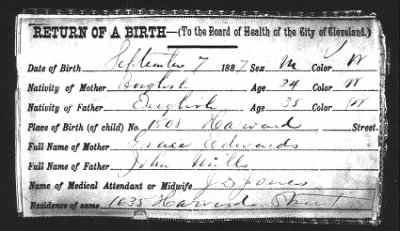 RETURN OF A BIRTH—(To the Board of Health of the City of Cleveland.)
Date of Birth September 7 1887 Sex M Color W
Nativity of Mother English Age 34 Color W
Nativity of Father English Age 35 Color W
Place of Birth (of child) No. 1508 Harvard Street.
Full Name of Mother Grace Edwards
Full Name of Father John Mills
Name of Medical Attendant or Midwife J D Jones
Residence of same 1635 Harvard Street